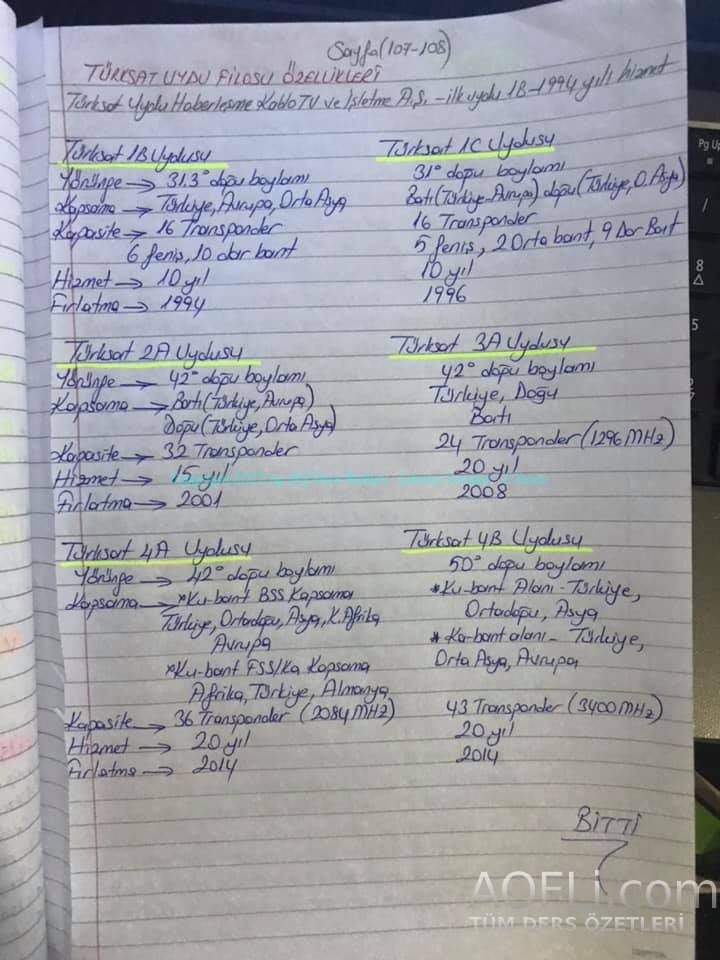 Sayfa (107-108)
TÜRKSAT UYDU FİLOSU ÖZELLİKLERİ
Türksat Uydu Haberleşme Kablo TV ve İşletme A.Ş. - ilk uydu 1B - 1994 yılı hizmet
Türksat 1B Uydusu
Yörünge → 31.3° doğu boylamı
Kapsama → Türkiye, Avrupa, Orta Asya
Kapasite → 16 Transponder
6 geniş, 10 dar bant
Hizmet → 10 yıl
Fırlatma → 1994
Türksat 1C Uydusu
31° doğu boylamı
Batı (Türkiye-Avrupa) doğu (Türkiye, O. Asya)
16 Transponder
5 geniş, 2 Orta bant, 9 Dar Bant
10 yıl
1996
Türksat 2A Uydusu
Yörünge → 42° doğu boylamı
Kapsama → Batı (Türkiye, Avrupa)
Doğu (Türkiye, Orta Asya)
Kapasite → 32 Transponder
Hizmet → 15 yıl
Fırlatma → 2001
Türksat 3A Uydusu
42° doğu boylamı
Türkiye, Doğu
Batı
24 Transponder (1296 MHz)
20 yıl
2008
Türksat 4A Uydusu
Yörünge → 42° doğu boylamı
Kapsama → *Ku-bant BSS Kapsama
Türkiye, Ortadoğu, Asya, K. Afrika
Avrupa
*Ku-bant FSS/Ka Kapsama
Afrika, Türkiye, Almanya
Kapasite → 36 Transponder (2084 MHz)
Hizmet → 20 yıl
Fırlatma → 2014
Türksat 4B Uydusu
50° doğu boylamı
*Ku-bant Alanı - Türkiye,
Ortadoğu, Asya
*Ka-bant alanı - Türkiye,
Orta Asya, Avrupa
43 Transponder (3400 MHz)
20 yıl
2014
BİTTİ
AOFLi.com
TÜM DERS ÖZETLERİ
Pg Up
/
8
5